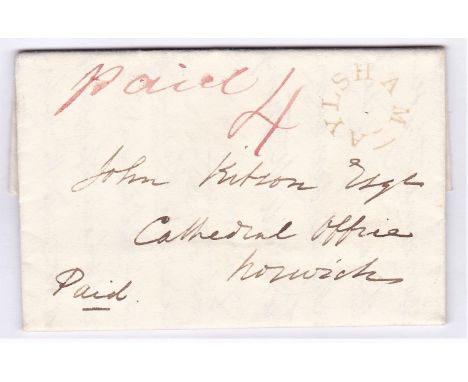 Paid
4
AYLSHAM
John Kitson Esqr
Cathedral Office
Norwich
Paid.